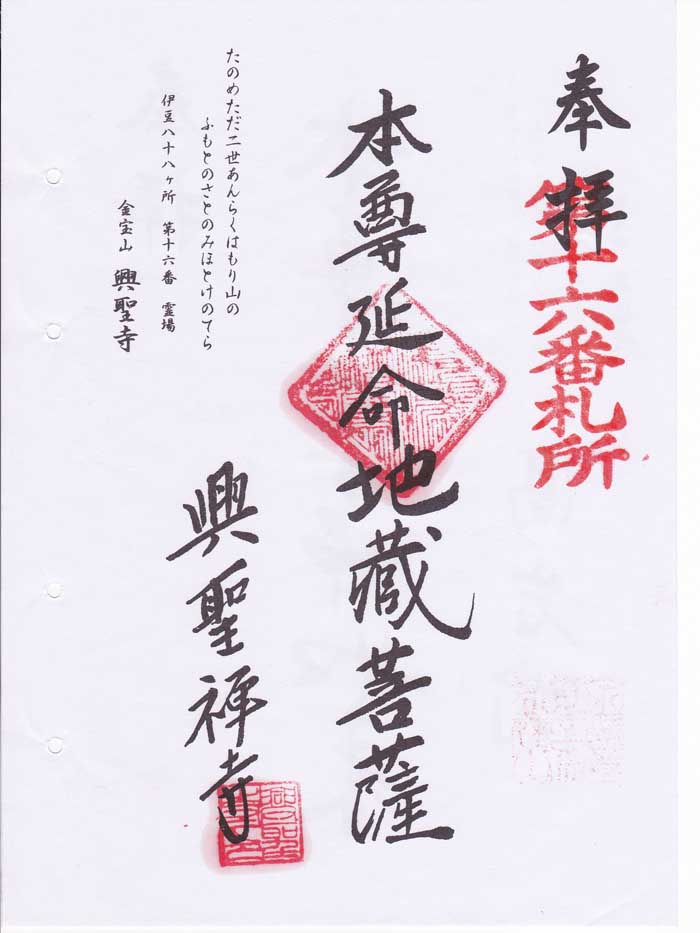 奉拝
第十六番札所
本尊延命地蔵菩薩
興聖禅寺
たのめただ二世あんらくはもり山の
ふもとのさとのみほとけのてら
伊豆八十八ヶ所 第十六番 霊場
金宝山 興聖寺